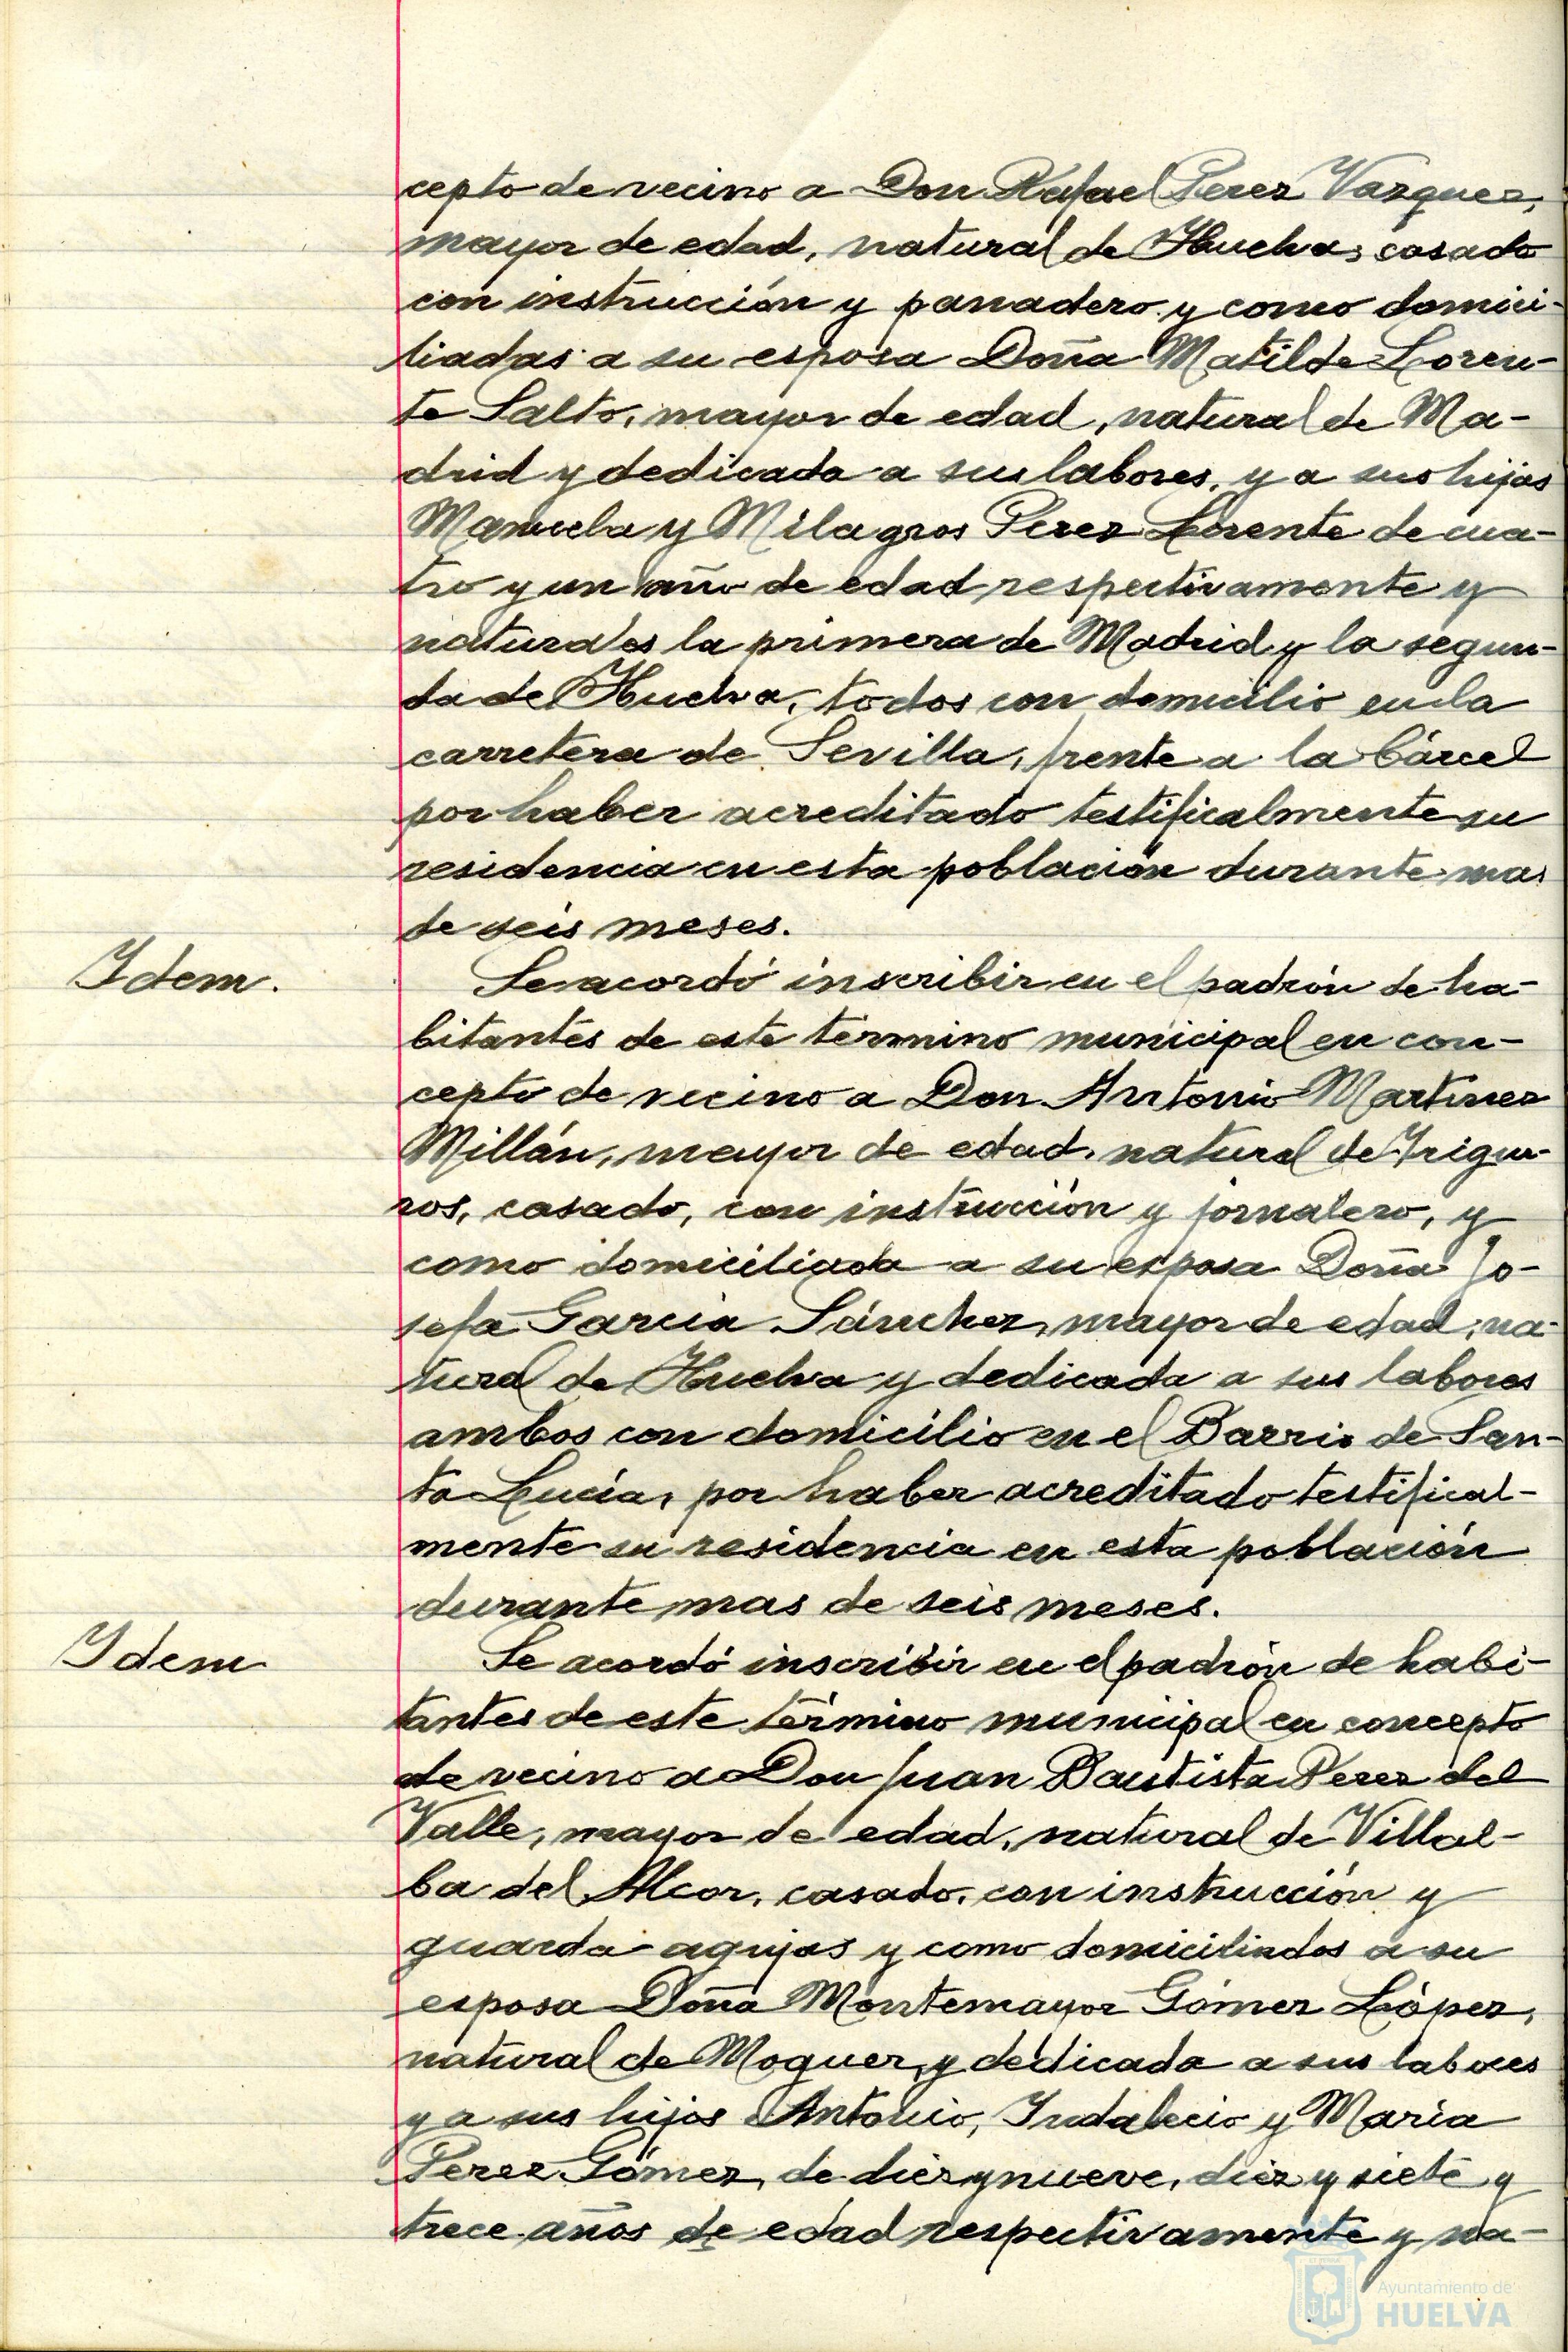 cepto de vecino a Don Rafael Perez Vazquez,
mayor de edad, natural de Huelva, casado
con instrucción y panadero y como domici-
liadas a su esposa Doña Matilde Loren-
te Salto, mayor de edad, natural de Ma-
drid y dedicada a sus labores, y a sus hijas
Manuela y Milagros Perez Lorente de cua-
tro y un año de edad respectivamente y
naturales la primera de Madrid y la segun-
da de Huelva, todos con domicilio en la
carretera de Sevilla, frente a la Cárcel
por haber acreditado testificalmente su
residencia en esta población durante mas
de seis meses.
Idem.
Se acordó inscribir en el padrón de ha-
bitantes de este término municipal en con-
cepto de vecino a Don Antonio Martinez
Millán, mayor de edad, natural de Trigue-
ros, casado, con instrucción y jornalero, y
como domiciliada a su esposa Doña Jo-
sefa Garcia Sánchez, mayor de edad, na-
tural de Huelva y dedicada a sus labores
ambos con domicilio en el Barrio de San-
ta Lucía, por haber acreditado testifical-
mente su residencia en esta población
durante mas de seis meses.
Idem
Se acordó inscribir en el padrón de habi-
tantes de este término municipal en concepto
de vecino a Don Juan Bautista Perez del
Valle, mayor de edad, natural de Villal-
ba del Alcor, casado, con instrucción y
guarda agujas y como domiciliados a su
esposa Doña Montemayor Gómez López,
natural de Moguer, y dedicada a sus labores
y a sus hijos Antonio, Indalecio y María
Perez Gómez, de diez y nueve, diez y siete y
trece años de edad respectivamente y na-
Ayuntamiento de
HUELVA